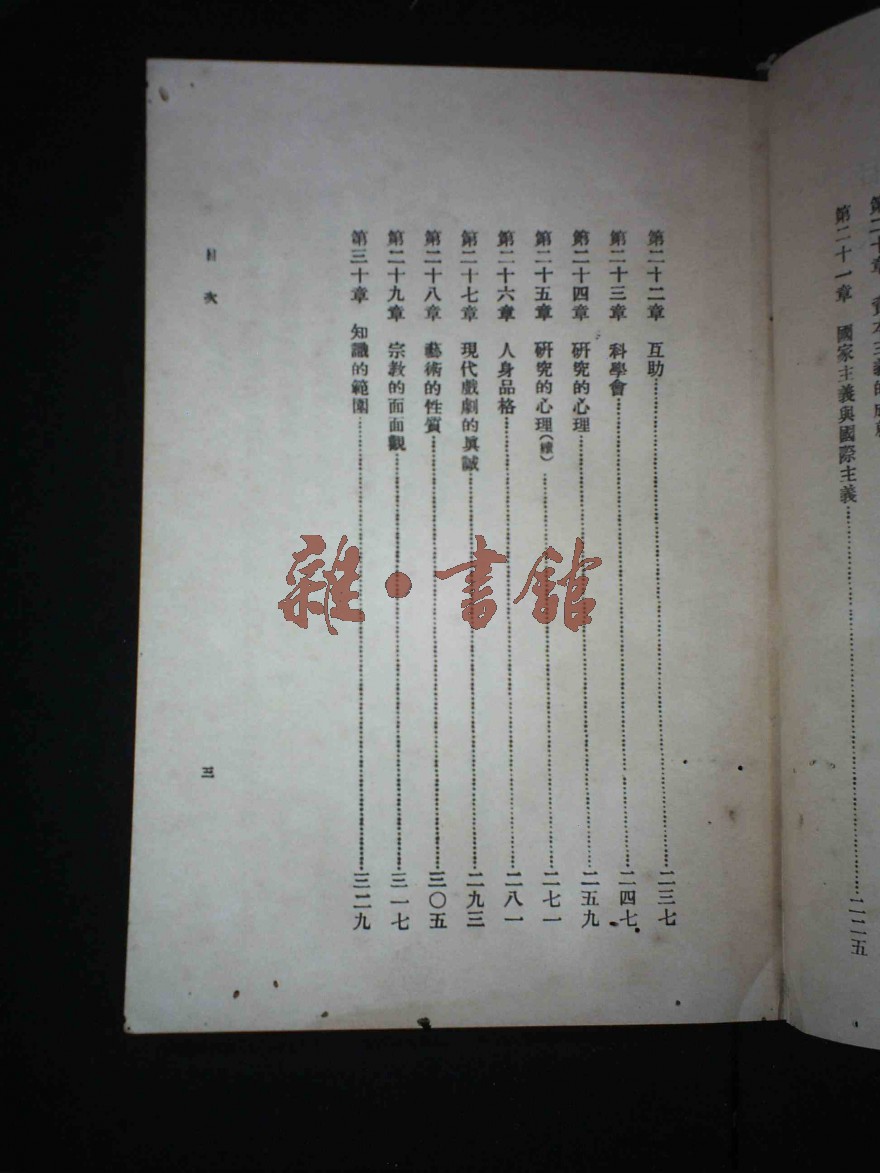 第二十章 資本主義的
第二十一章 國家主義與國際主義……二二五
第二十二章 互助……二三七
第二十三章 科學會……二四七
第二十四章 研究的心理……二五九
第二十五章 研究的心理(續)……二七一
第二十六章 人身品格……二八一
第二十七章 現代戲劇的眞誠……二九三
第二十八章 藝術的性質……三〇五
第二十九章 宗教的面面觀……三一七
第三十章 知識的範圍……三二九
目次
三
雜·書館